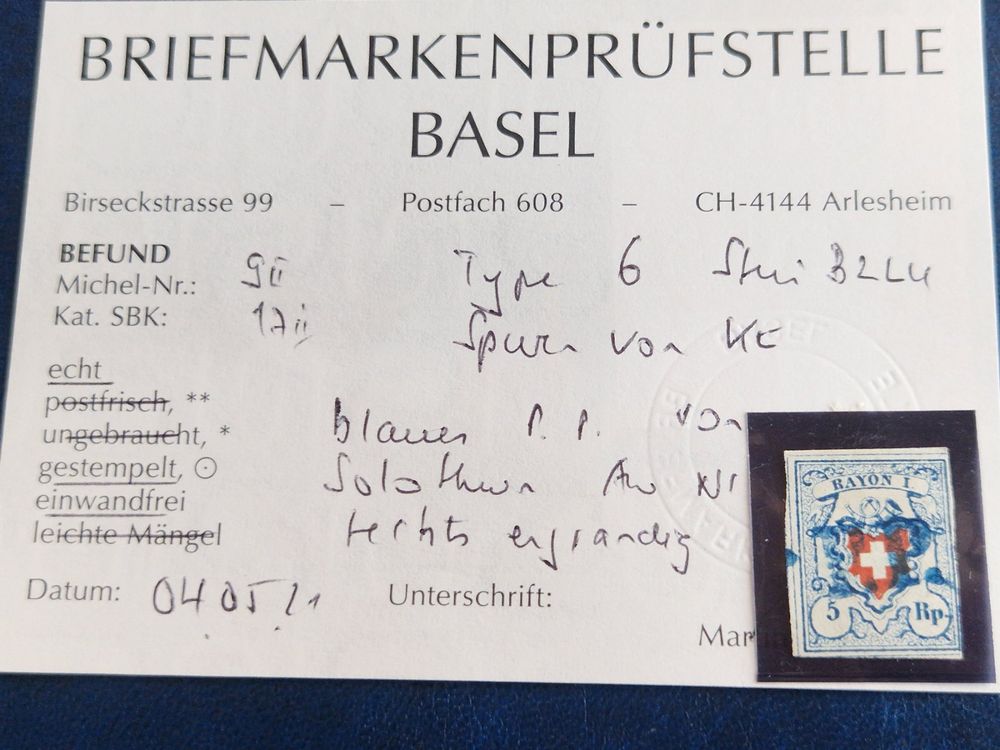 BRIEFMARKENPRÜFSTELLE
BASEL
Birseckstrasse 99 – Postfach 608 – CH-4144 Arlesheim
BEFUND
Michel-Nr.: 9II
Kat. SBK: 17II
Type 6 Stein B2LU
Spuren von KE
echt
postfrisch, **
ungebraucht, *
gestempelt, ⊙
einwandfrei
leichte Mängel
blauer P.P. von
Solothurn
rechts engrandig
Datum: 04 05 21 Unterschrift:
RAYON I
5 Rp.